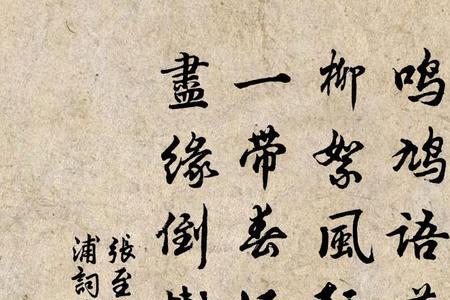 鸣鳩语
柳絮風
一带春
盡緣倒
張至
浦詞